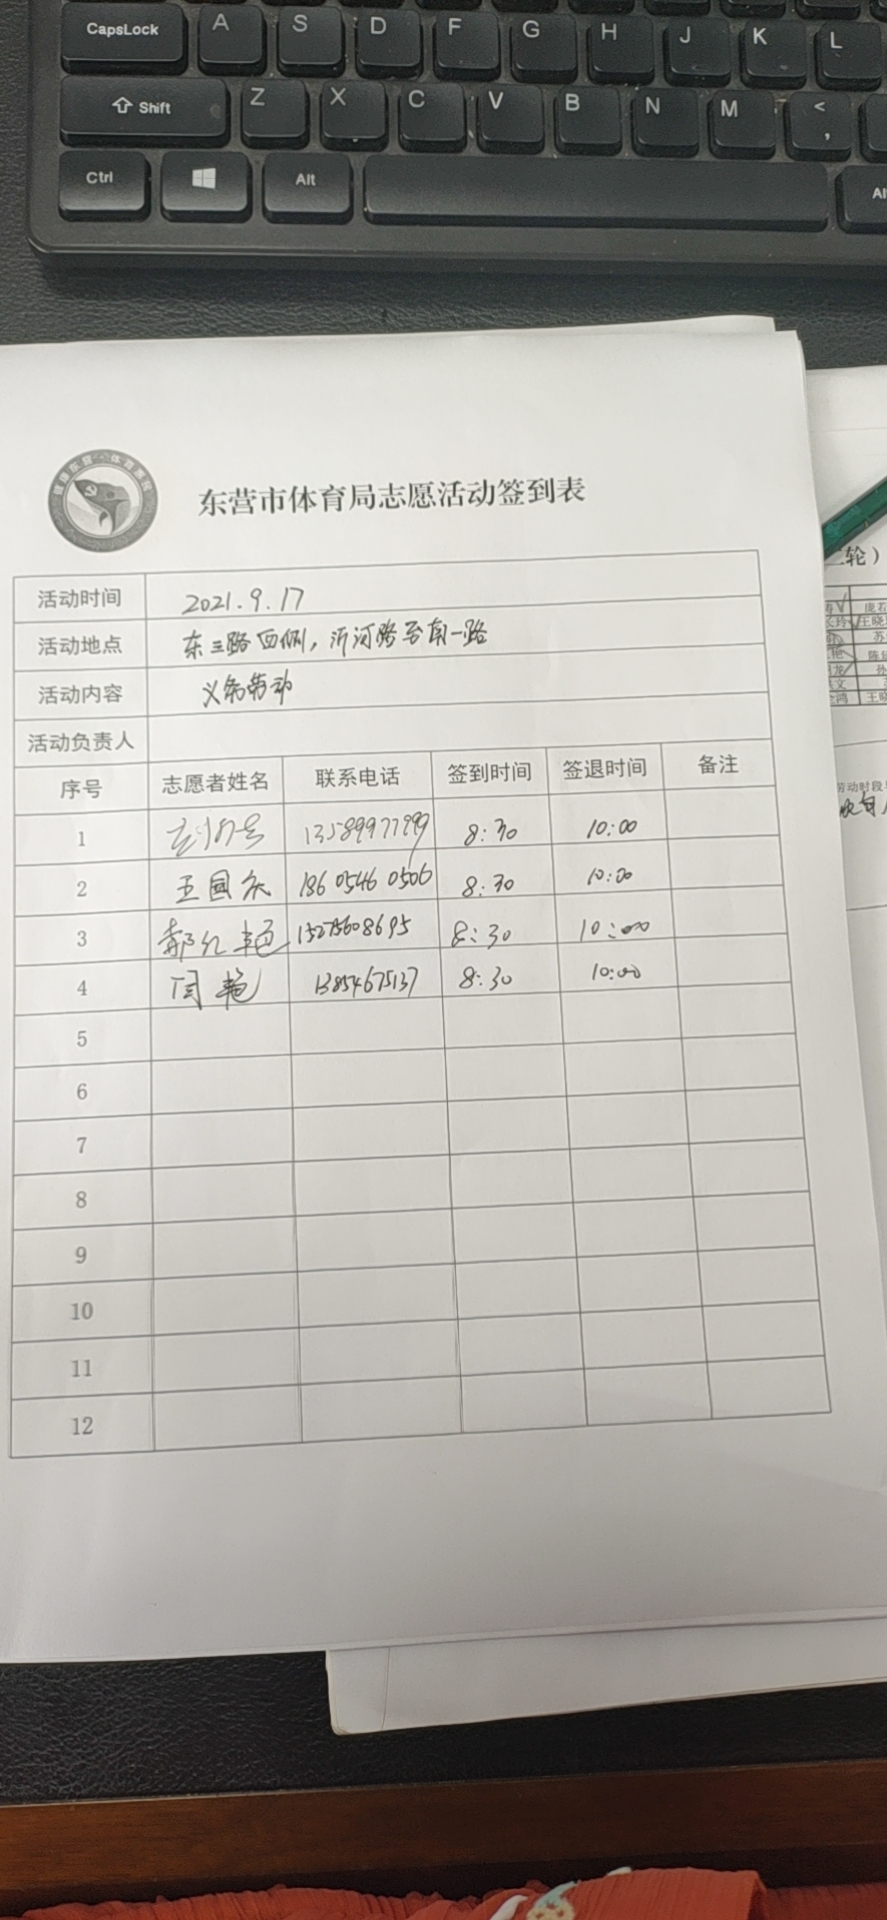 CapsLock A S D F G H J K L
Shift Z X C V B N M < ,
Ctrl Alt
东营市体育局志愿活动签到表
活动时间 2021.9.17
活动地点 东三路西侧，沂河路至南一路
活动内容 义务劳动
活动负责人
序号 志愿者姓名 联系电话 签到时间 签退时间 备注
1 13589977799 8:30 10:00
2 王国庆 186 0546 0506 8:30 10:00
3 郝红艳 15275608695 8:30 10:00
4 闫艳 13854675137 8:30 10:00
5
6
7
8
9
10
11
12
轮）
王晓